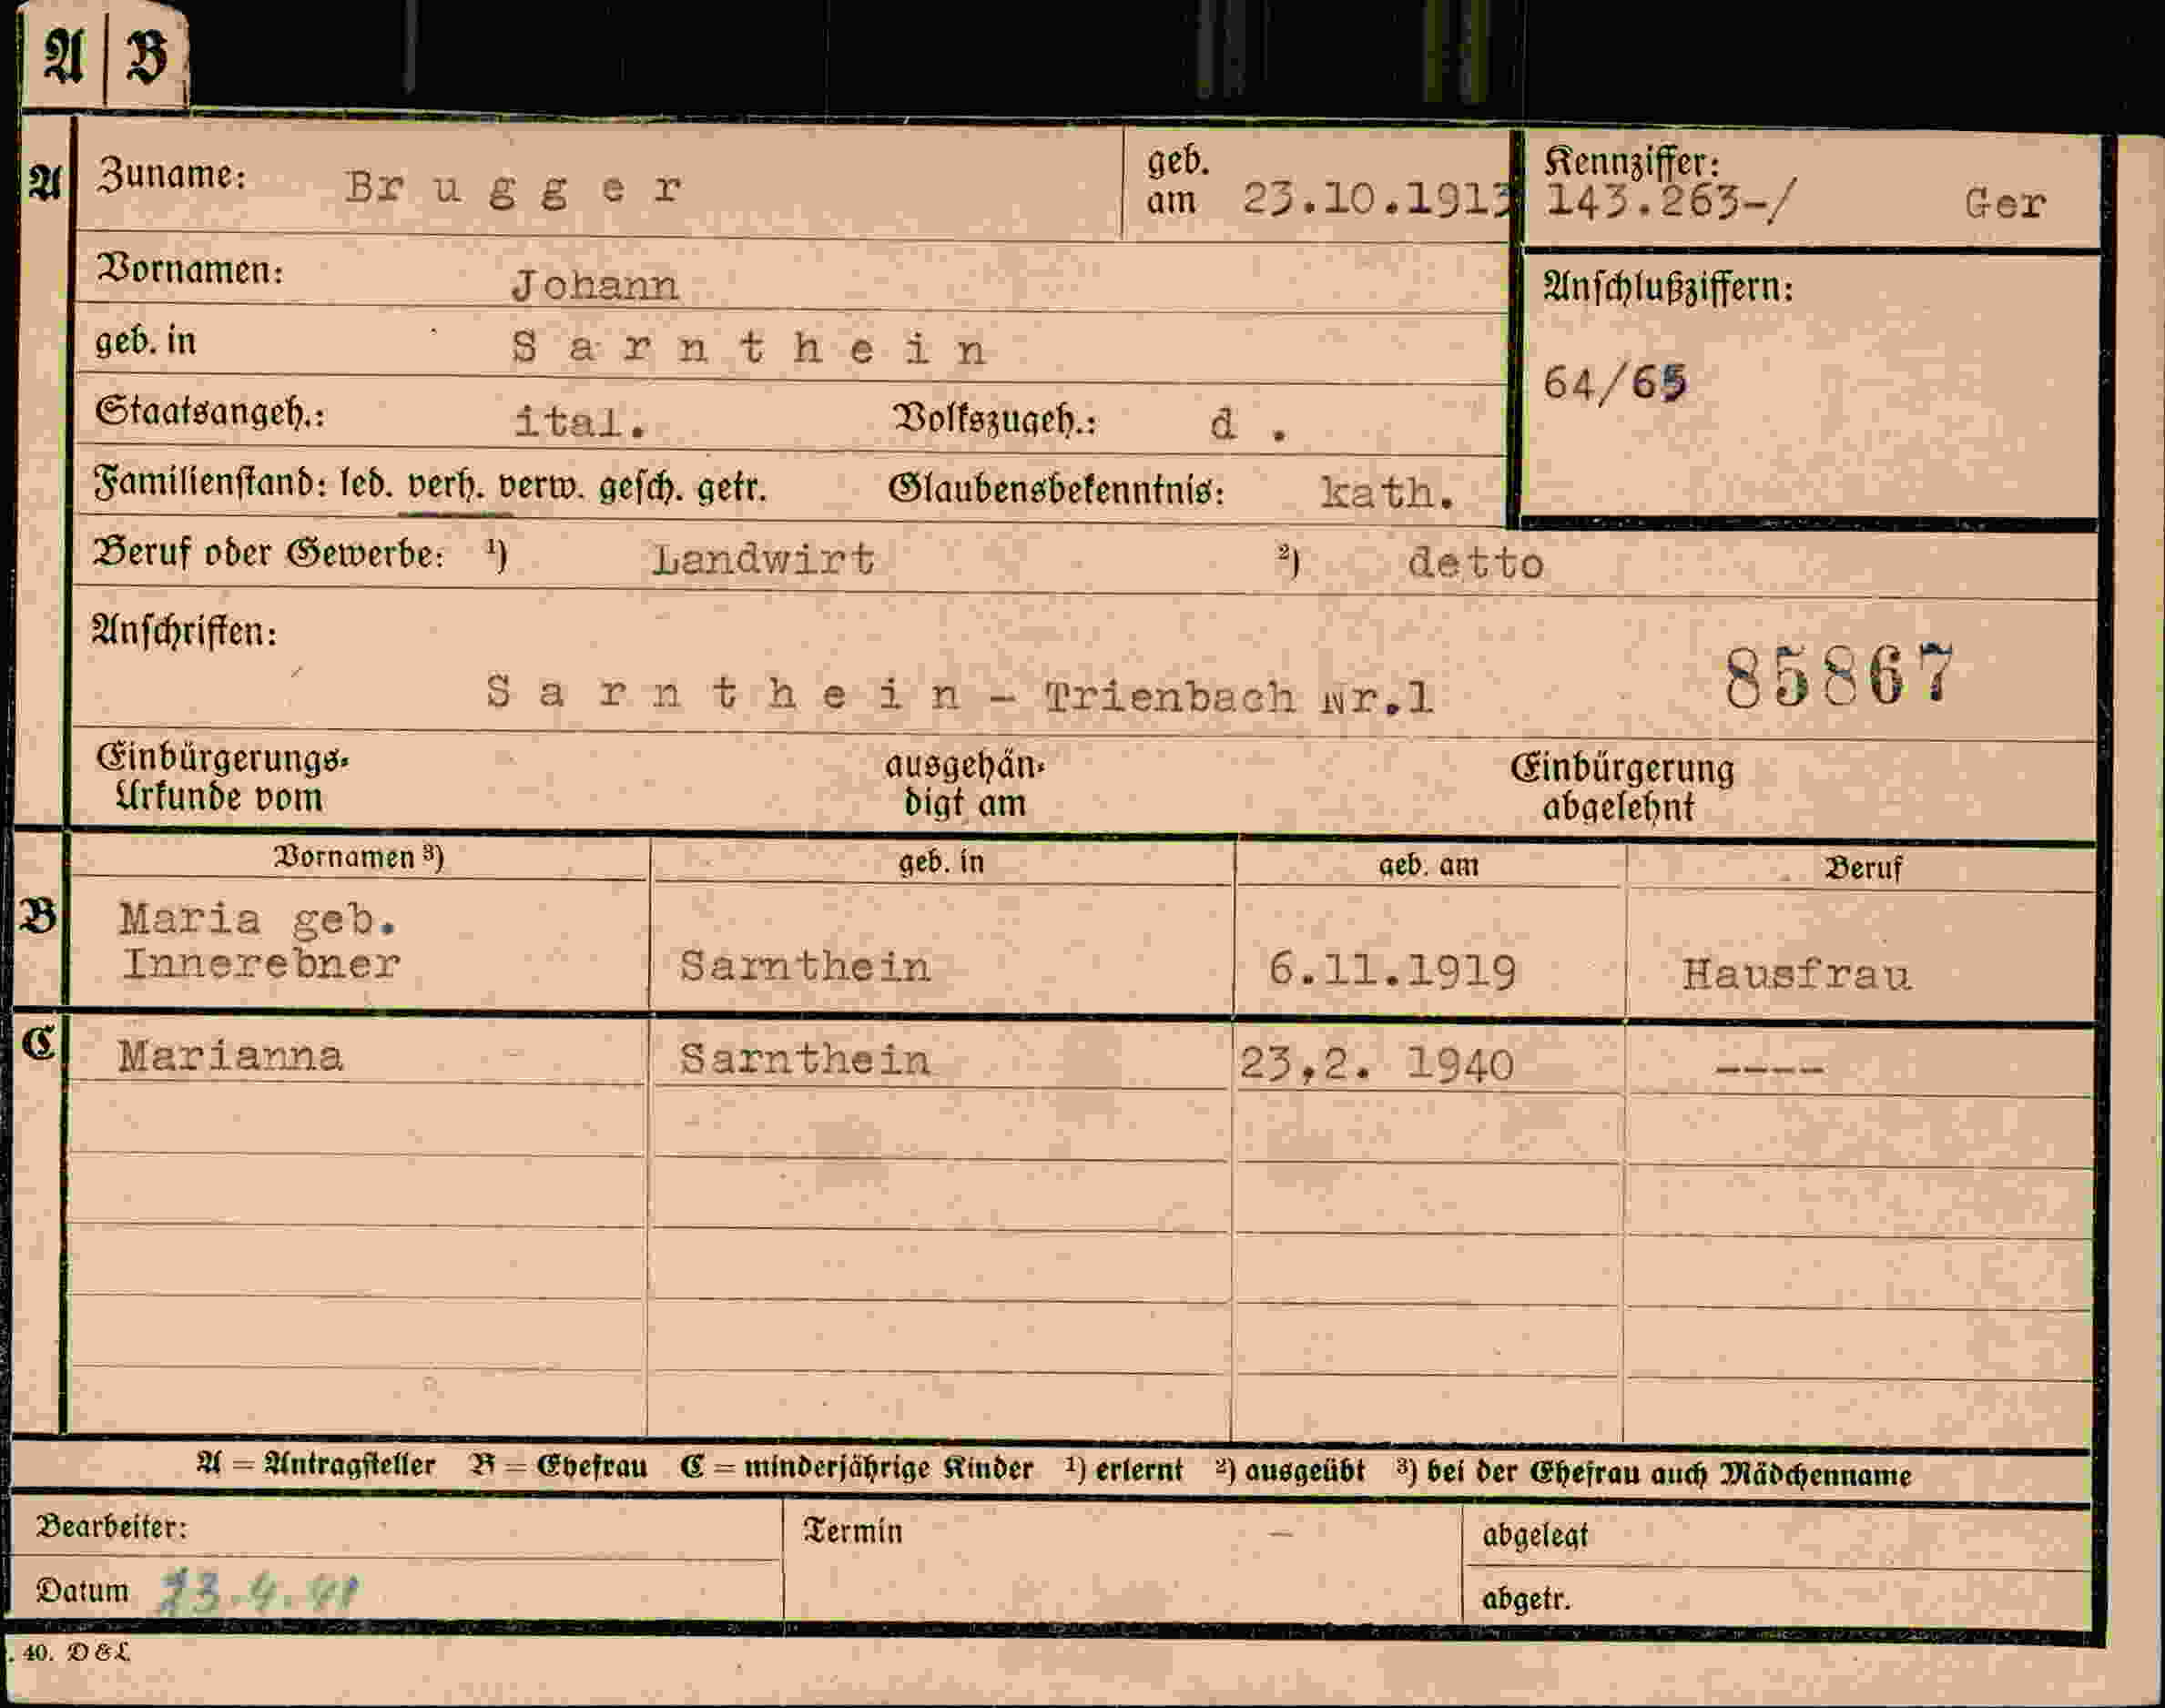 A B
A Zuname: Brugger geb. am 23.10.1913 Kennziffer: 143.263-/ Ger
Vornamen: Johann
Anschlußziffern:
geb. in Sarnthein
64/65
Staatsangeh.: ital. Volkszugeh.: d .
Familienstand: led. verh. verw. gesch. getr. Glaubensbekenntnis: kath.
Beruf oder Gewerbe: ¹) Landwirt ²) detto
Anschriften:
Sarnthein - Trienbach Nr.1 85867
Einbürgerungs- ausgehän- Einbürgerung
Urkunde vom digt am abgelehnt
Vornamen ³) geb. in geb. am Beruf
B Maria geb.
Innerebner Sarnthein 6.11.1919 Hausfrau
C Marianna Sarnthein 23,2. 1940 ----
A = Antragsteller B = Ehefrau C = minderjährige Kinder ¹) erlernt ²) ausgeübt ³) bei der Ehefrau auch Mädchenname
Bearbeiter: Termin – abgelegt
Datum 23.4.41 abgetr.
. 40. D & L